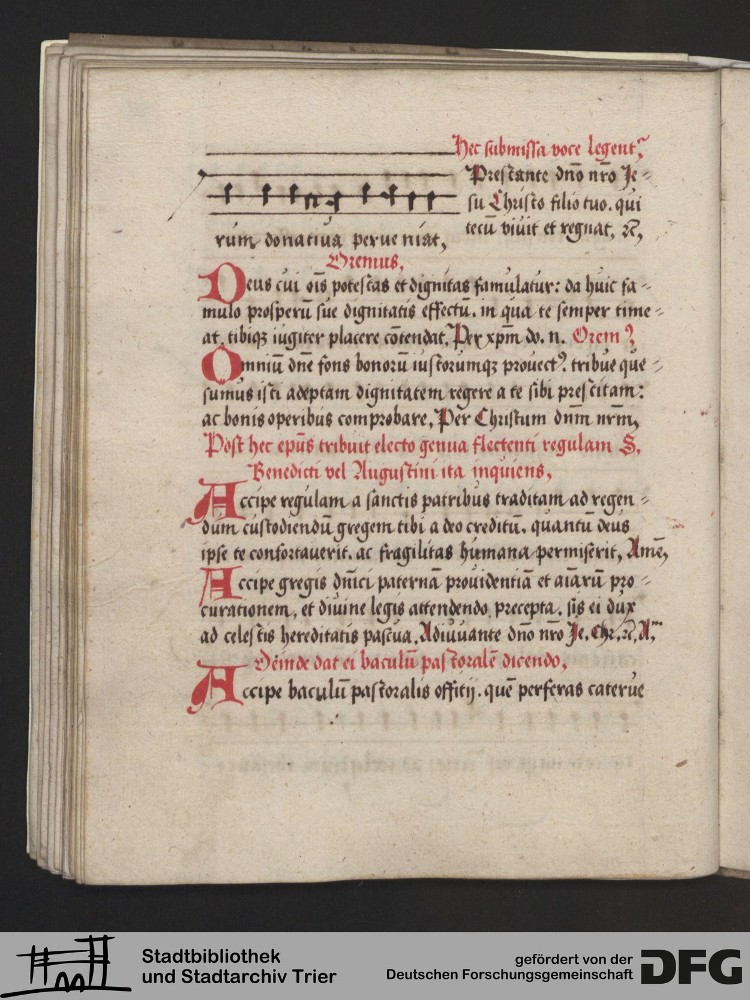 Hec submissa voce legent᷑
Prestante dn̄o nr̄o Je⸗
su Christo filio tuo. qui
tecū viuit et regnat, ⁊c̄,
rum donatiua perueniat,
Oremus,
Deus cui oīs potestas et dignitas famulatur: da huic fa⸗
mulo prosperū sue dignitatis effectū. in qua te semper time⸗
at, tibiqꝫ iugiter placere cōtendat, Per xp̄m do. n. Oremꝰ
Omniū dn̄e fons bonorū iustorumqꝫ prouectꝰ. tribue que⸗
sumus isti adeptam dignitatem regere a te sibi prescitam:
ac bonis operibus comprobare, Per Christum dn̄m nr̄m,
Post hec ep̄us tribuit electo genua flectenti regulam S.
Benedicti vel Augustini ita inquiens,
Accipe regulam a sanctis patribus traditam ad regen⸗
dum custodiendū gregem tibi a deo creditū. quantū deus
ipse te confortauerit. ac fragilitas humana permiserit, Amē,
Accipe gregis dn̄ici paternā prouidentiā et aīarū pro⸗
curationem, et diuine legis attendendo precepta. sis ei dux
ad celestis hereditatis pascua, Adiuuante dn̄o nr̄o Je. Chr. ⁊c̄, A
Deinde dat ei baculū pastoralē dicendo,
Accipe baculū pastoralis offitij. quē perferas caterue
Stadtbibliothek
und Stadtarchiv Trier
gefördert von der
Deutschen Forschungsgemeinschaft
DFG